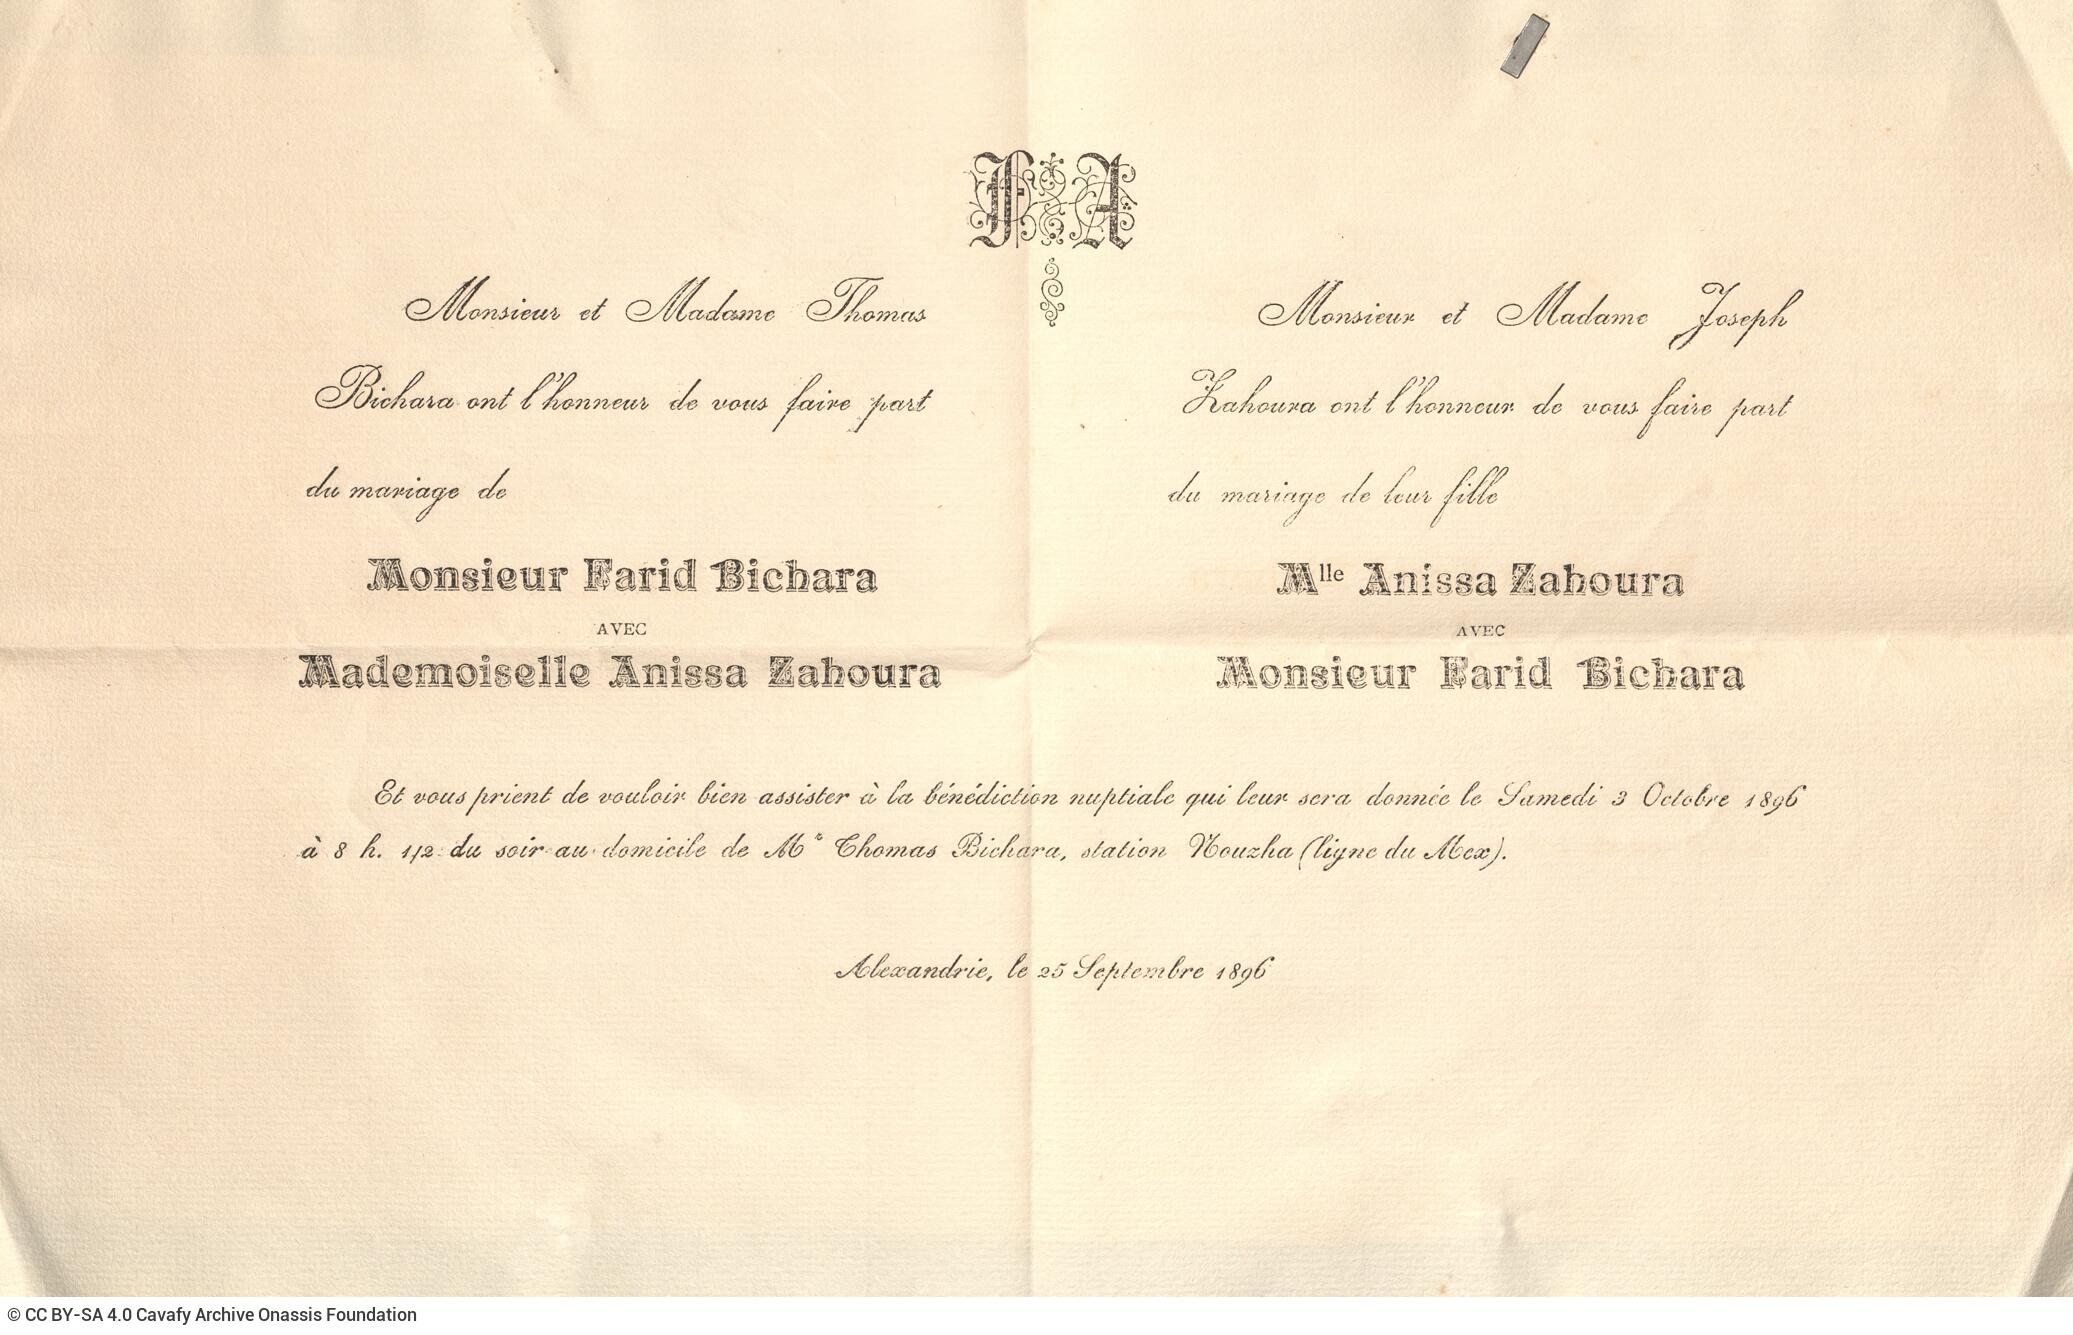 FA
Monsieur et Madame Thomas
Bichara ont l'honneur de vous faire part
du mariage de
Monsieur Farid Bichara
AVEC
Mademoiselle Anissa Zahoura
Monsieur et Madame Joseph
Zahoura ont l'honneur de vous faire part
du mariage de leur fille
Mlle Anissa Zahoura
AVEC
Monsieur Farid Bichara
Et vous prient de vouloir bien assister à la bénédiction nuptiale qui leur sera donnée le Samedi 3 Octobre 1896
à 8 h. 1/2 du soir au domicile de Mr Thomas Bichara, station Nouzha (ligne du Mex).
Alexandrie, le 25 Septembre 1896
© CC BY-SA 4.0 Cavafy Archive Onassis Foundation